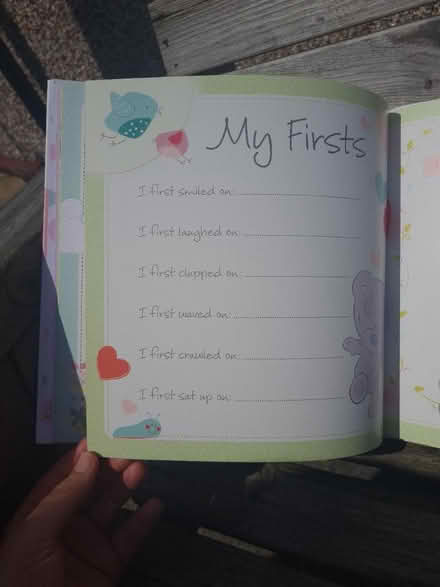 My Firsts
I first smiled on:
I first laughed on:
I first clapped on:
I first waved on:
I first crawled on:
I first sat up on: